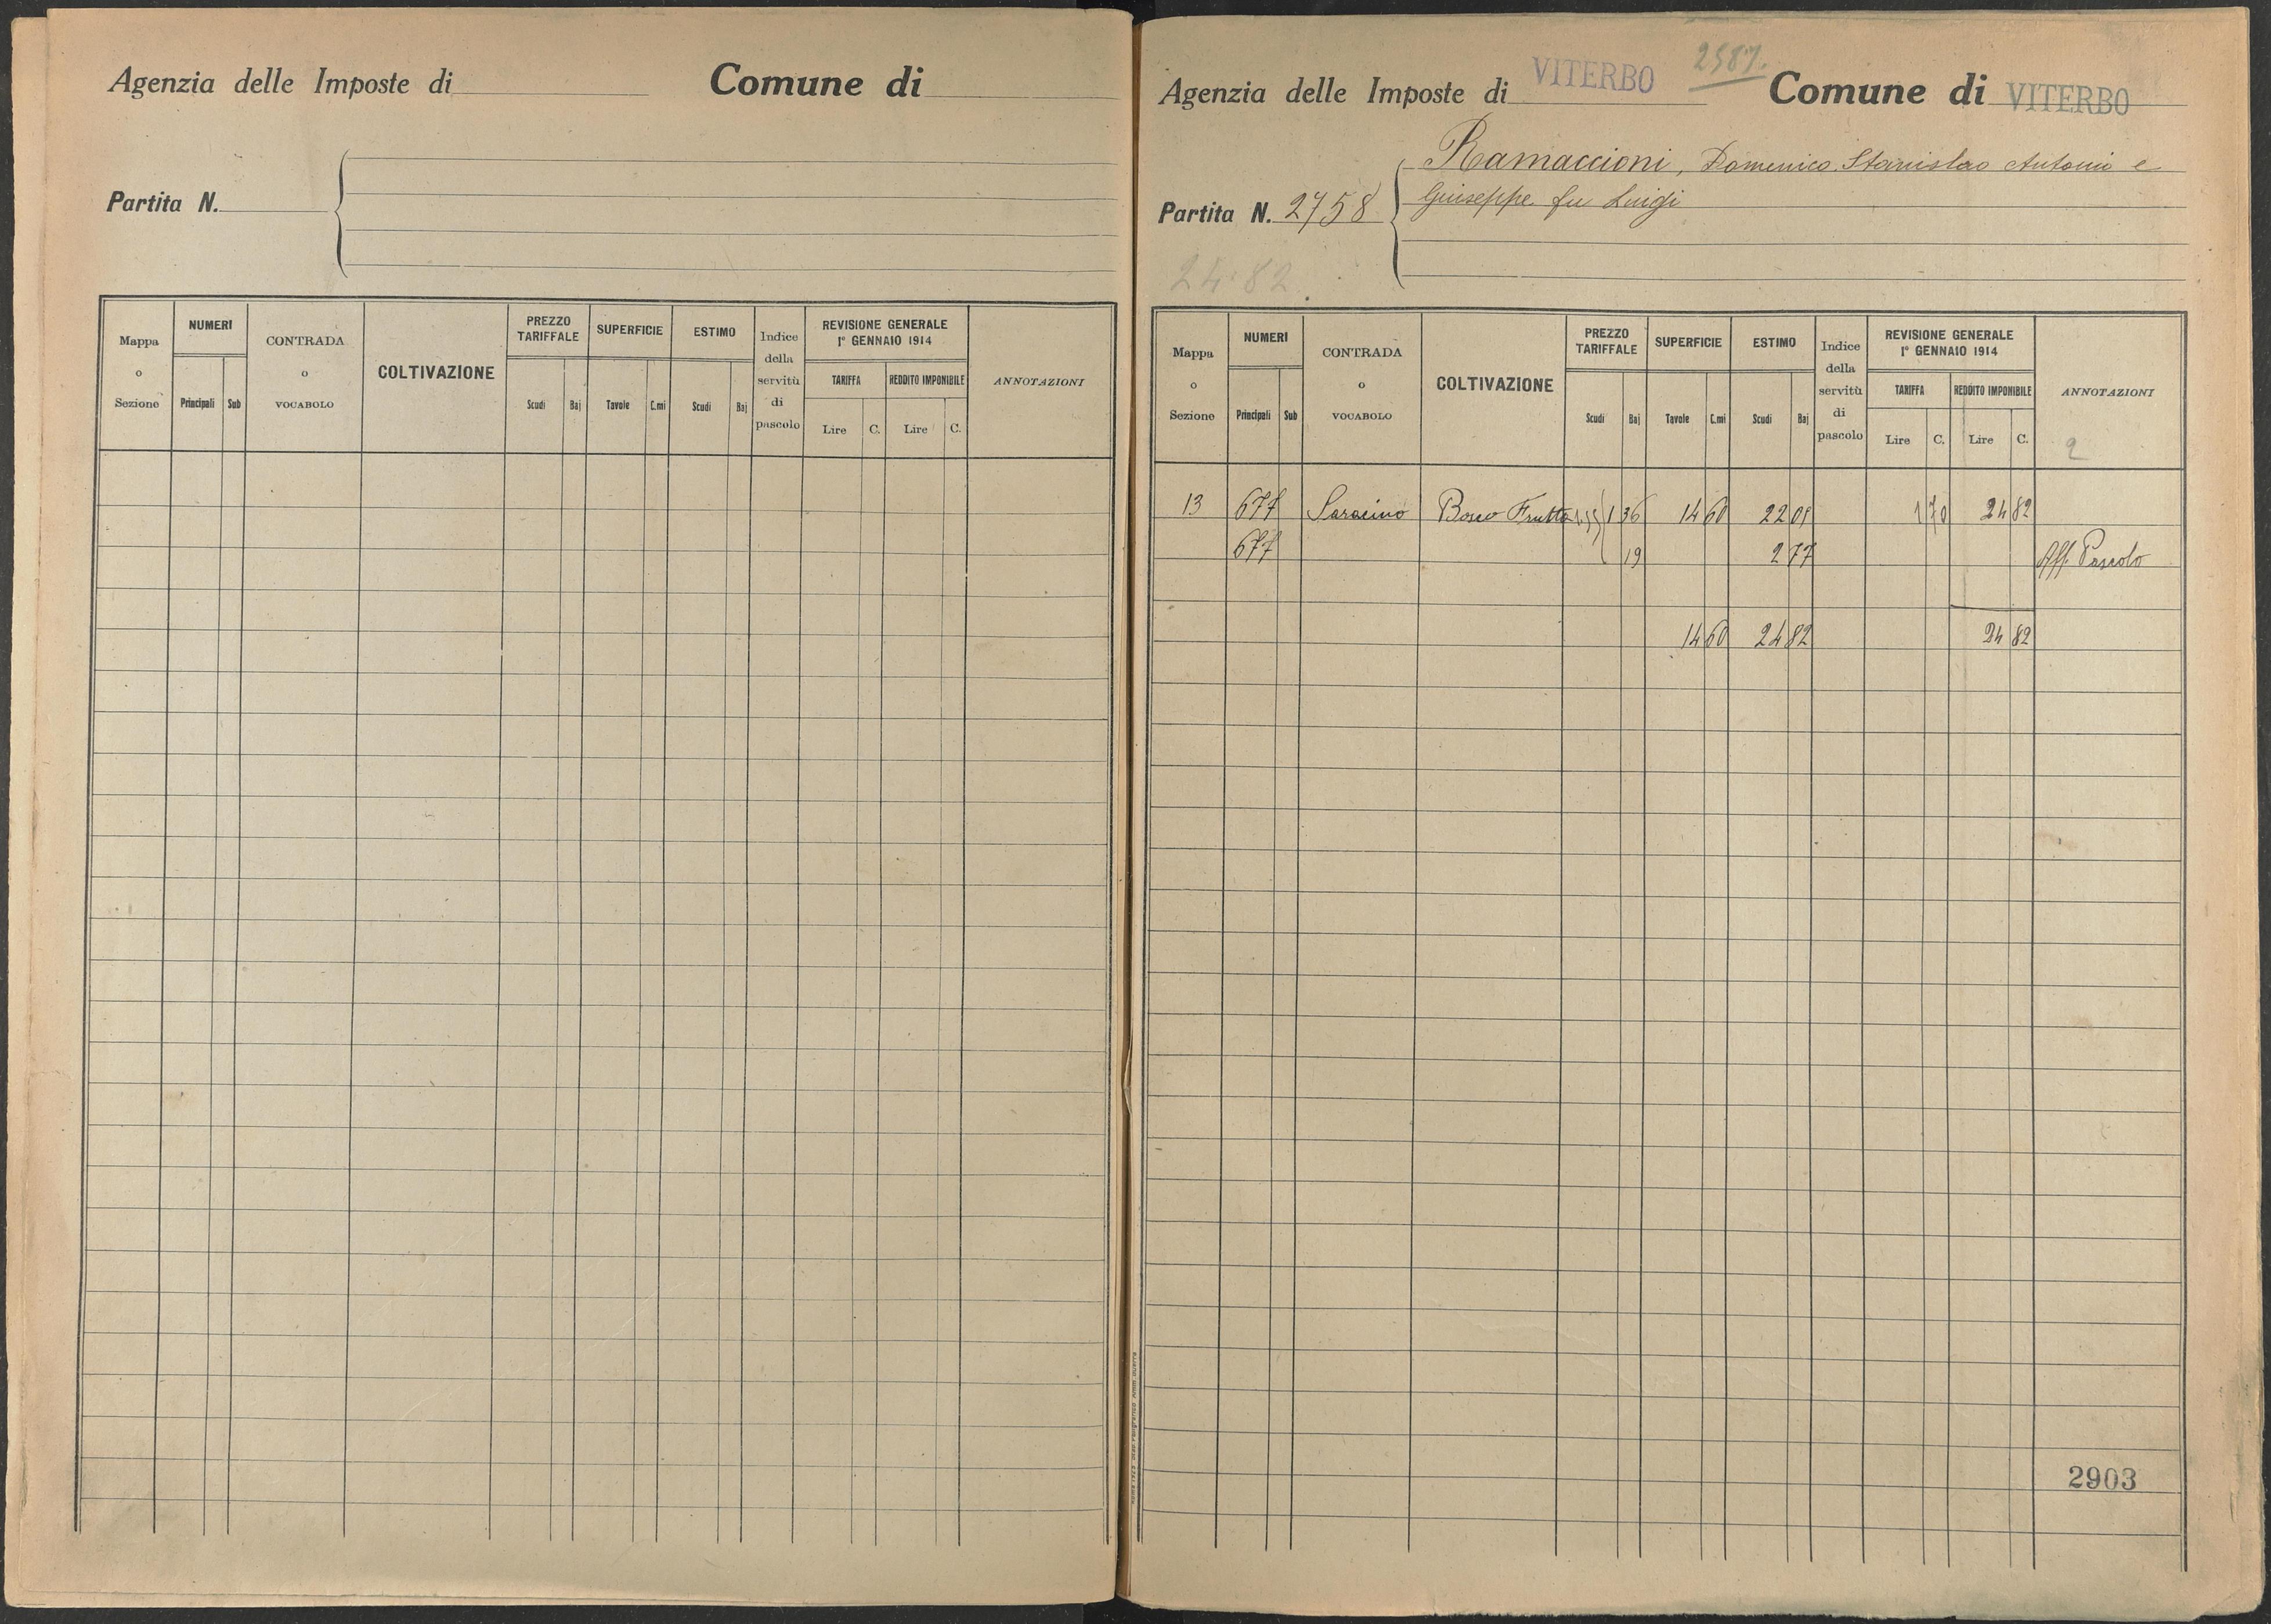 Agenzia delle Imposte di
Comune di
Partita N.
Mappa o Sezione
NUMERI
Principali Sub
CONTRADA o VOCABOLO
COLTIVAZIONE
PREZZO TARIFFALE
Scudi Baj
SUPERFICIE
Tavole C.mi
ESTIMO
Scudi Baj
Indice della servitù di pascolo
REVISIONE GENERALE
1° GENNAIO 1914
TARIFFA REDDITO IMPONIBILE
Lire C. Lire C.
ANNOTAZIONI
2587.
Agenzia delle Imposte di VITERBO Comune di VITERBO
Ramaccioni, Domenico Stanislao Antonio e
Partita N. 2758 Giuseppe fu Luigi
24.82
Mappa o Sezione
NUMERI
Principali Sub
CONTRADA o VOCABOLO
COLTIVAZIONE
PREZZO TARIFFALE
Scudi Baj
SUPERFICIE
Tavole C.mi
ESTIMO
Scudi Baj
Indice della servitù di pascolo
REVISIONE GENERALE
1° GENNAIO 1914
TARIFFA REDDITO IMPONIBILE
Lire C. Lire C.
ANNOTAZIONI
2
13 677 Saracino Bosco Frutto 1.55 1 36 14 60 22 05 1 70 24 82
677 19 2 77 Aff. Pascolo
14 60 24 82 24 82
2903